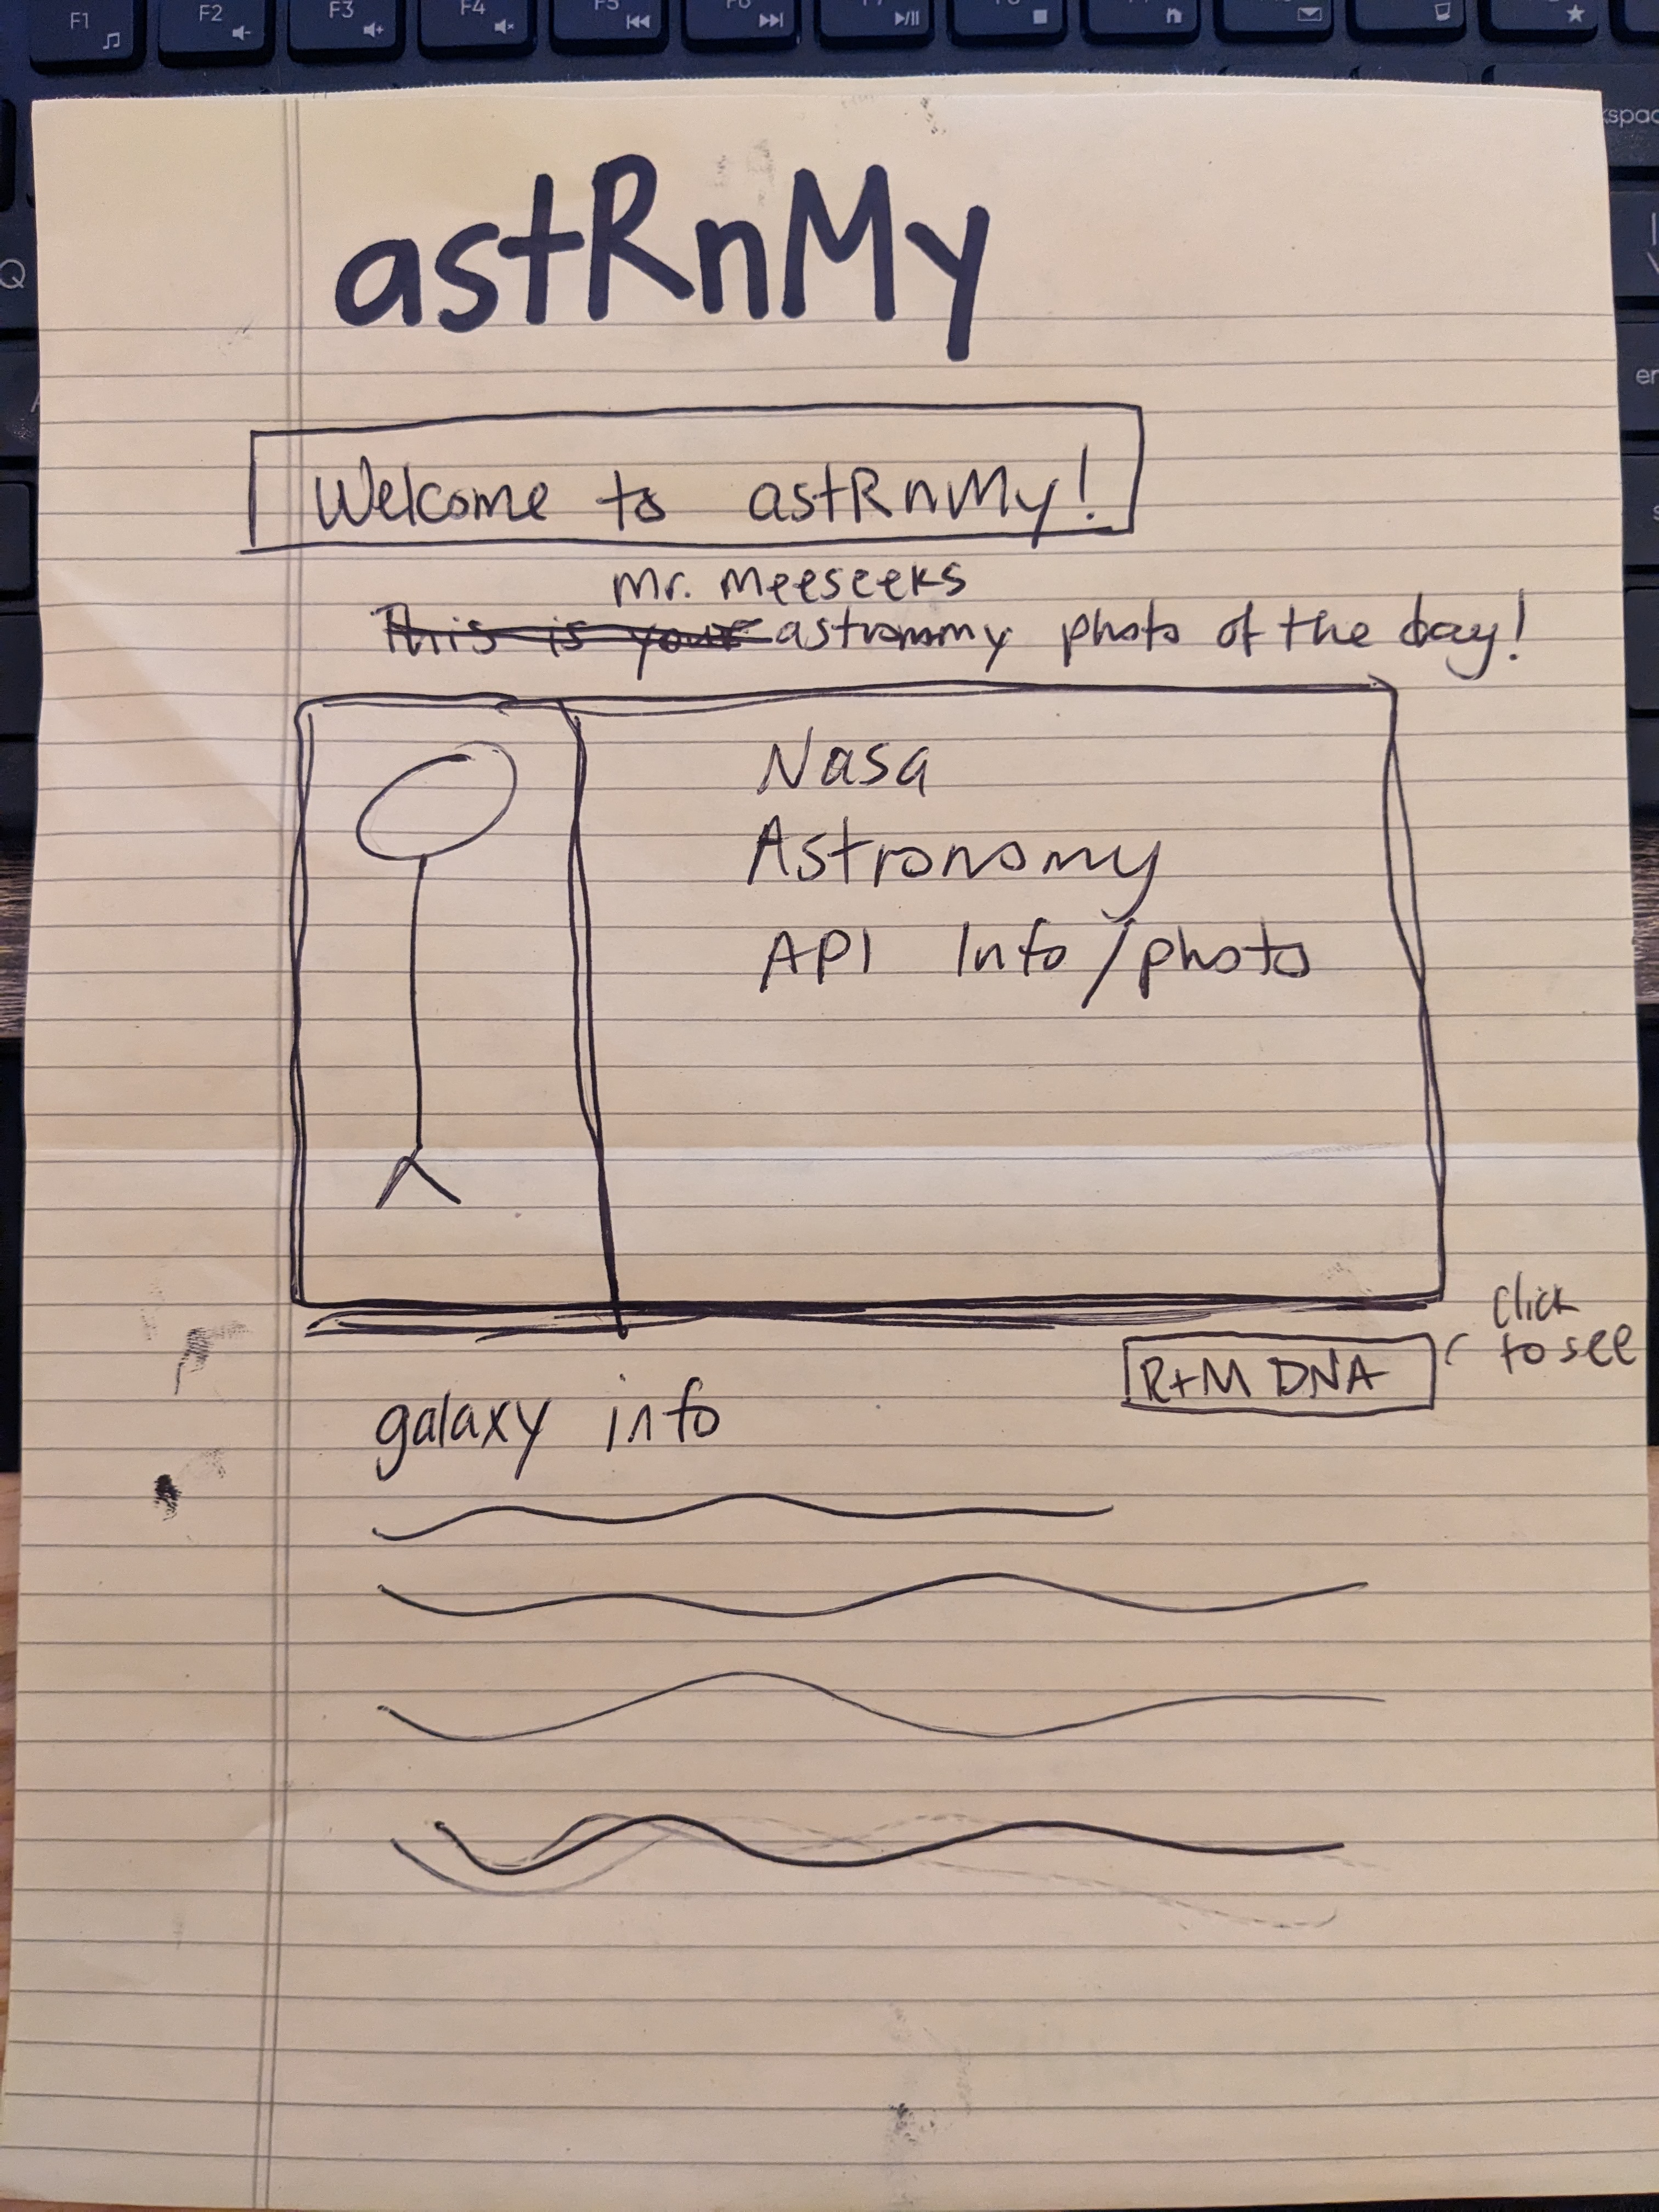 F1
F2
F3
F4
F5
F6
Q
astRnMy
Welcome to astRnMy!
Mr. Meeseeks
This is your astronomy photo of the day!
Nasa
Astronomy
API Info/photo
Click
to see
R+M DNA
galaxy info